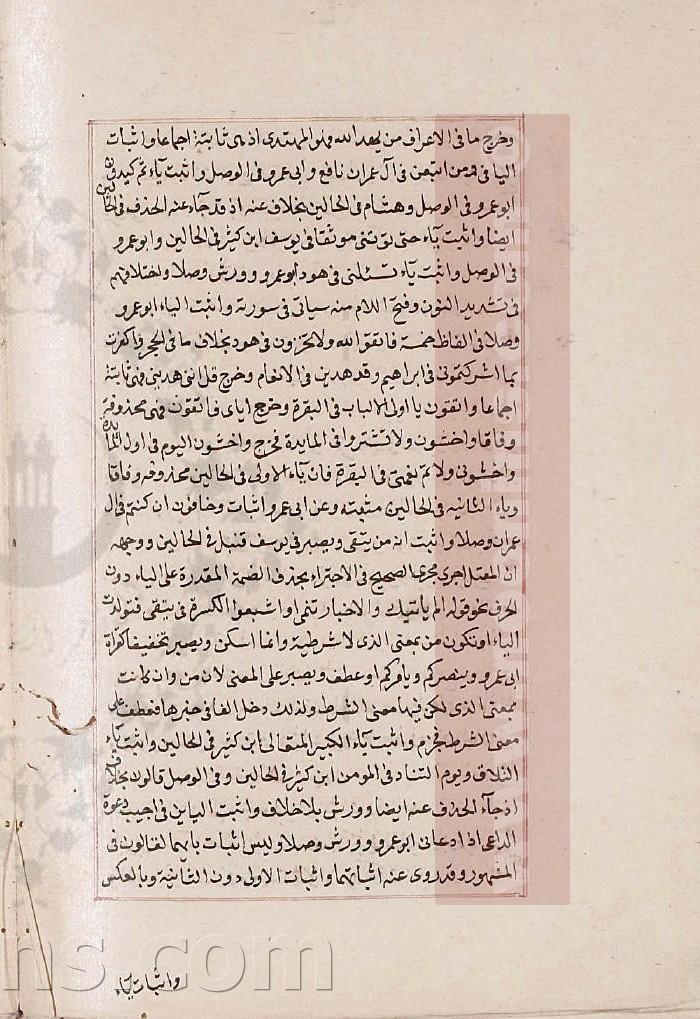 وخرج ما في الاعراف من يهد الله فهو المهتدى اذ هي ثابتة اجماعا واثبات
اليا في ومن اتبعن في آل عمران نافع وابى عمرو في الوصل واثبت يآء ثم كيدون
ابو عمرو في الوصل وهشام في الحالين بخلاف عنه اذ قد جآء عنه الحذف في الحالين
ايضا واثبت يآء حتى تؤتونى موثقا في يوسف ابن كثير في الحالين وابو عمرو
في الوصل واثبت يآء تسئلنى في هود ابو عمرو وورش وصلا واختلافهم
في تشديد النون وفتح اللام منه سياتى في سورته واثبت الياء ابو عمرو
وصلا في الفاظ خمسة فاتقوا الله ولا تخزون في هود بخلاف ما في الحجر وكفرت
بما اشركتمونى في ابراهيم وقد هدين في الانعام وخرج قل اننى هدينى فهى ثابتة
اجماعا واتقون يا اولى الالباب في البقرة وخرج اياى فاتقون فهى محذوفة
وفاقا واخشون ولا تشتروا في المايدة فخرج واخشون اليوم في اول المايدة
واخشونى ولاتم نعمتى في البقرة فان يآء الاولى في الحالين محذوفه وفاقا
وياء الثانيه في الحالين مثبته وعن ابى عمرو اثبات وخافون ان كنتم في ال
عمران وصلا واثبت انه من يتقى ويصبر في يوسف قنبل في الحالين ووجهه
ان المعتل اجرى مجرى الصحيح في الاجتزاء بحذف الضمة المقدرة على الياء دون
الحرف نحو قوله الم ياتيك والاخبار تنمى او اشبعوا الكسرة في يتقى فتولدت
الياء او تكون من بمعنى الذى لا شرطية وانما اسكن ويصبر تخفيفا كقراة
ابى عمرو وينصركم ويامركم او عطف ويصبر على المعنى لان من وان كانت
بمعنى الذى لكن فيها معنى الشرط ولذلك دخل الفا في خبرها فعطف على
معنى الشرط فجزم واثبت يآء الكبير المتعالى ابن كثير في الحالين واثبت يآء
التلاق ويوم التناد في المومن ابن كثير في الحالين وفي الوصل قالون بخلاف
اذ جآء الحذف عنه ايضا وورش بلا خلاف واثبت اليآين في اجيب دعوة
الداعى اذا دعانى ابو عمرو وورش وصلا وليس اثبات يايهما لقالون في
المشهور وقد روى عنه اثباتهما واثبات الاولى دون الثانية وبالعكس
واثبات يآء
ns.com